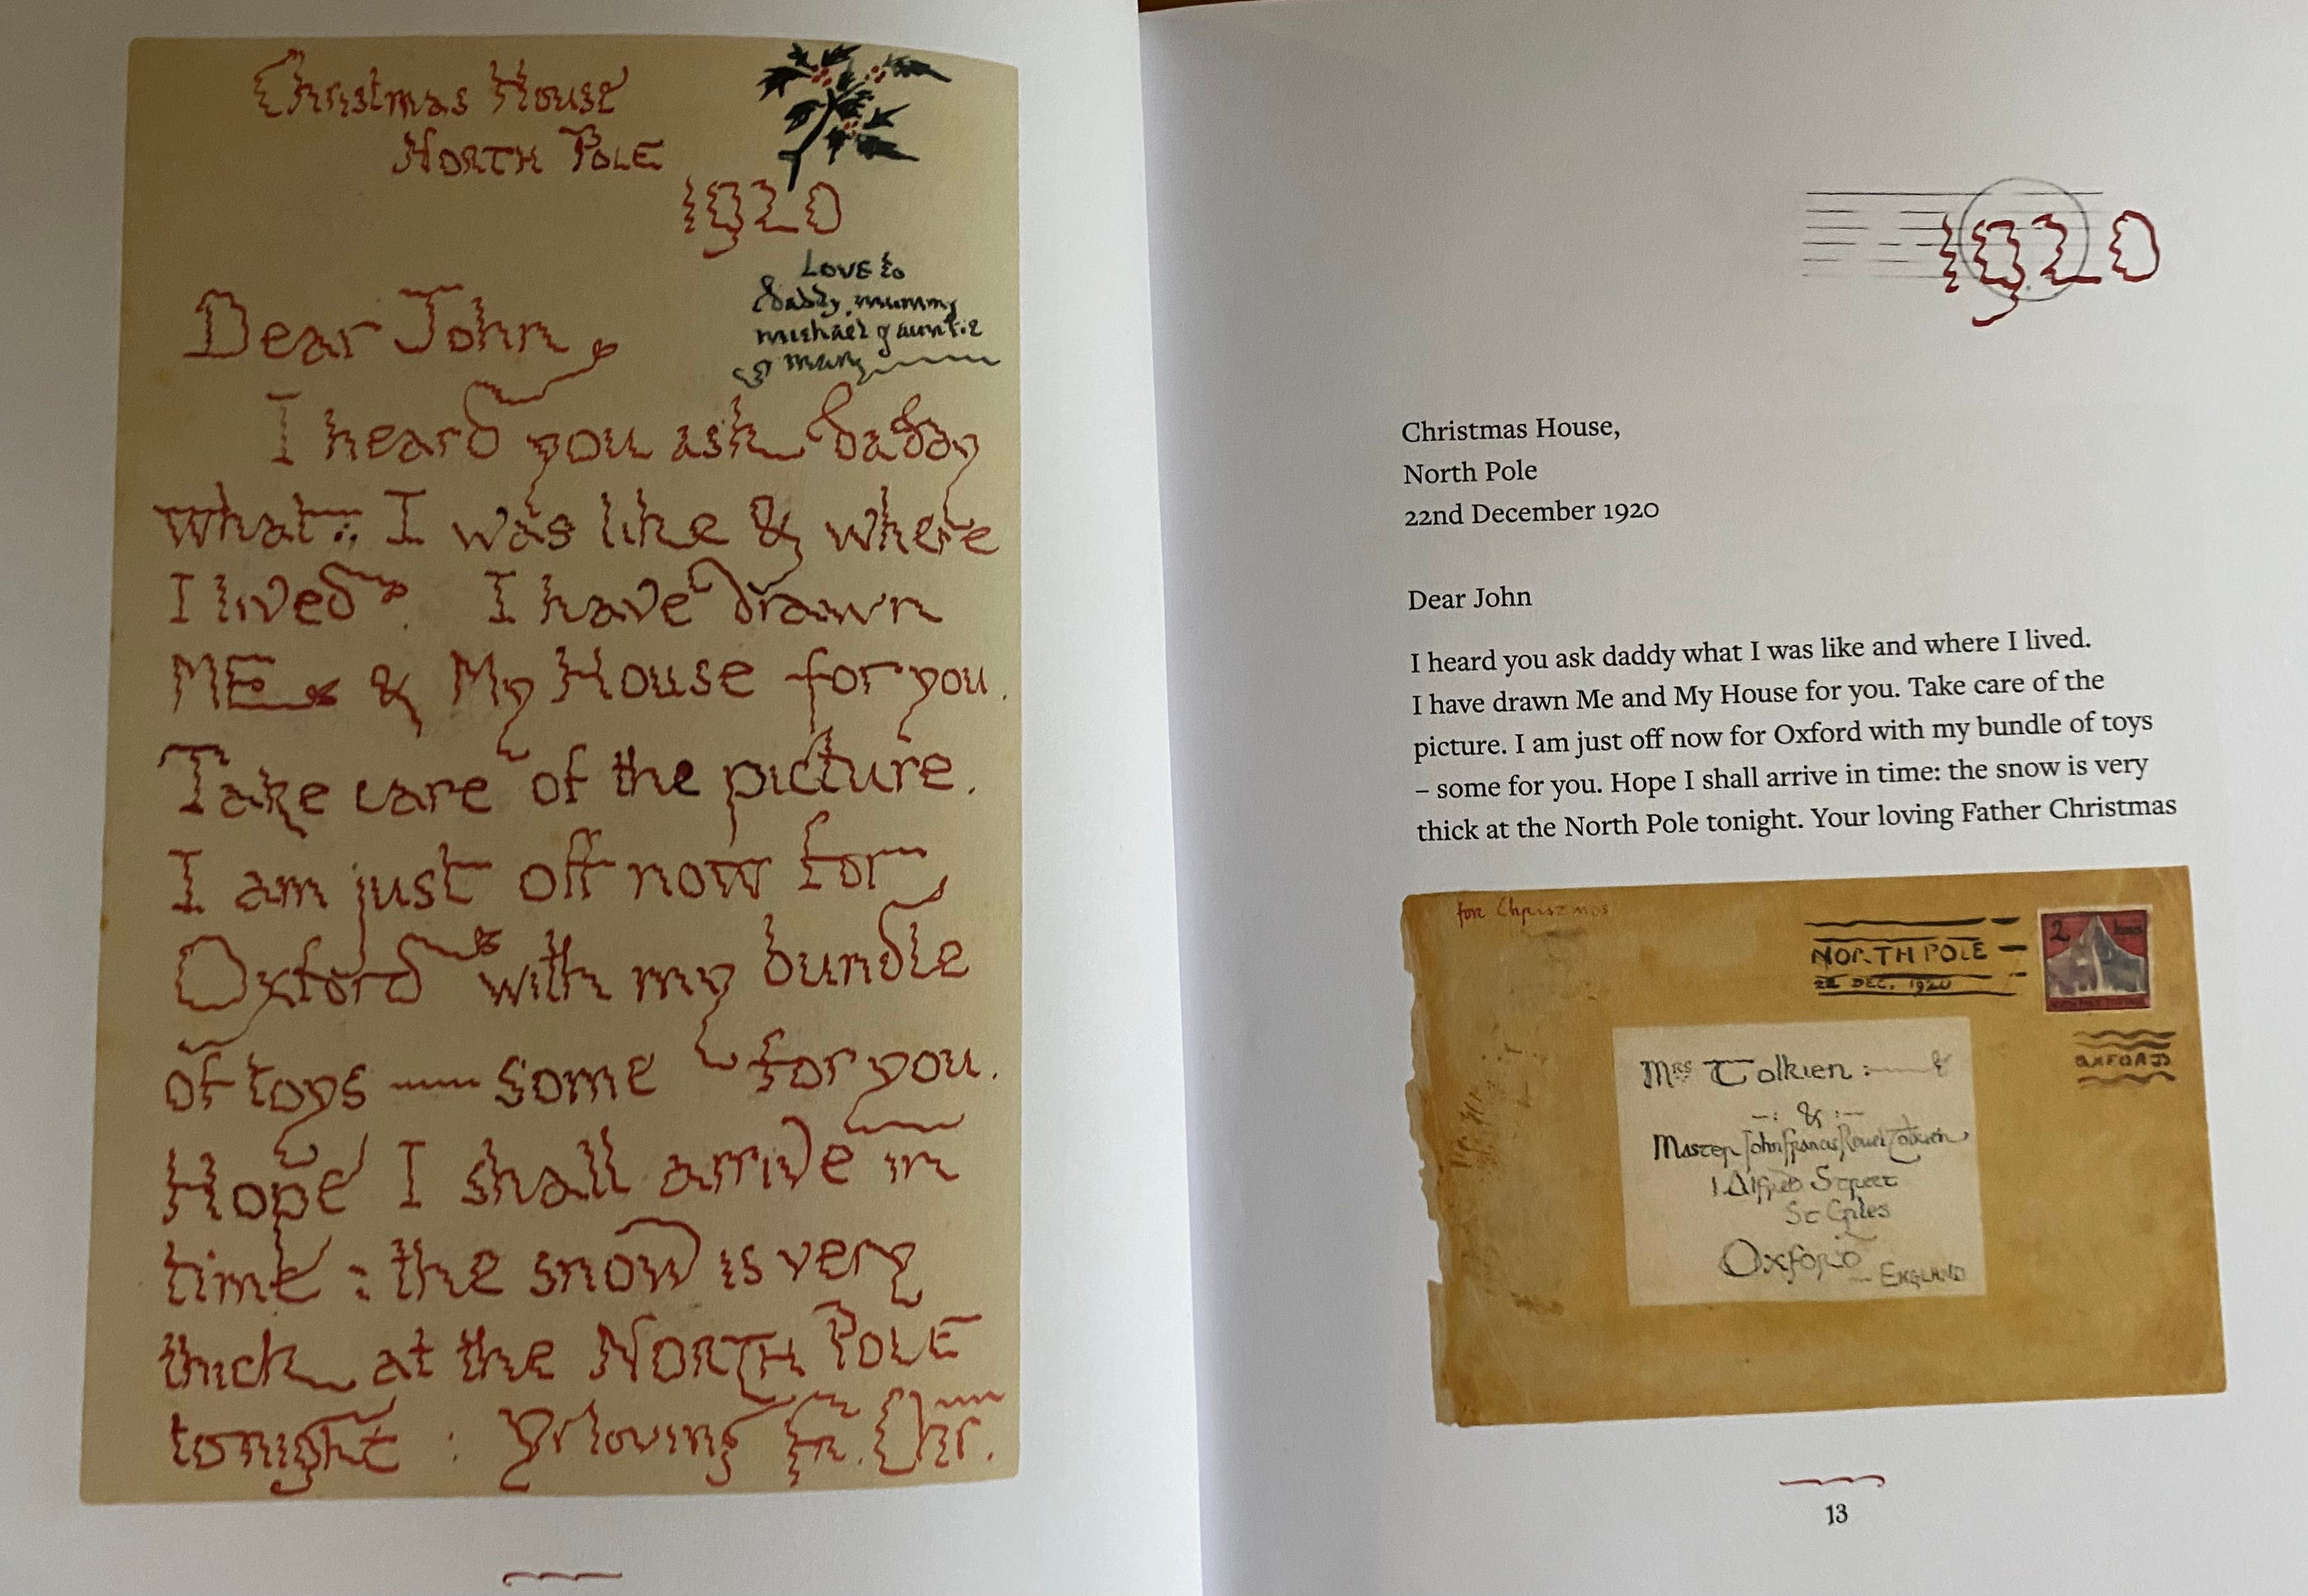 Christmas House
NORTH POLE
1920
LOVE to
daddy, mummy
michael & auntie
& mary
Dear John,
I heard you ask daddy
what I was like & where
I lived. I have drawn
ME & My House for you.
Take care of the picture.
I am just off now for
Oxford with my bundle
of toys — some for you.
Hope I shall arrive in
time : the snow is very
thick at the NORTH POLE
tonight : yr loving Fr. Chr.
1920
Christmas House,
North Pole
22nd December 1920
Dear John
I heard you ask daddy what I was like and where I lived.
I have drawn Me and My House for you. Take care of the
picture. I am just off now for Oxford with my bundle of toys
– some for you. Hope I shall arrive in time: the snow is very
thick at the North Pole tonight. Your loving Father Christmas
for Christmas
NORTH POLE
22 DEC. 1920
2
OXFORD
Mrs Tolkien :
— : & : —
Master John Francis Reuel Tolkien
1 Alfred Street
St Giles
Oxford
— ENGLAND
13